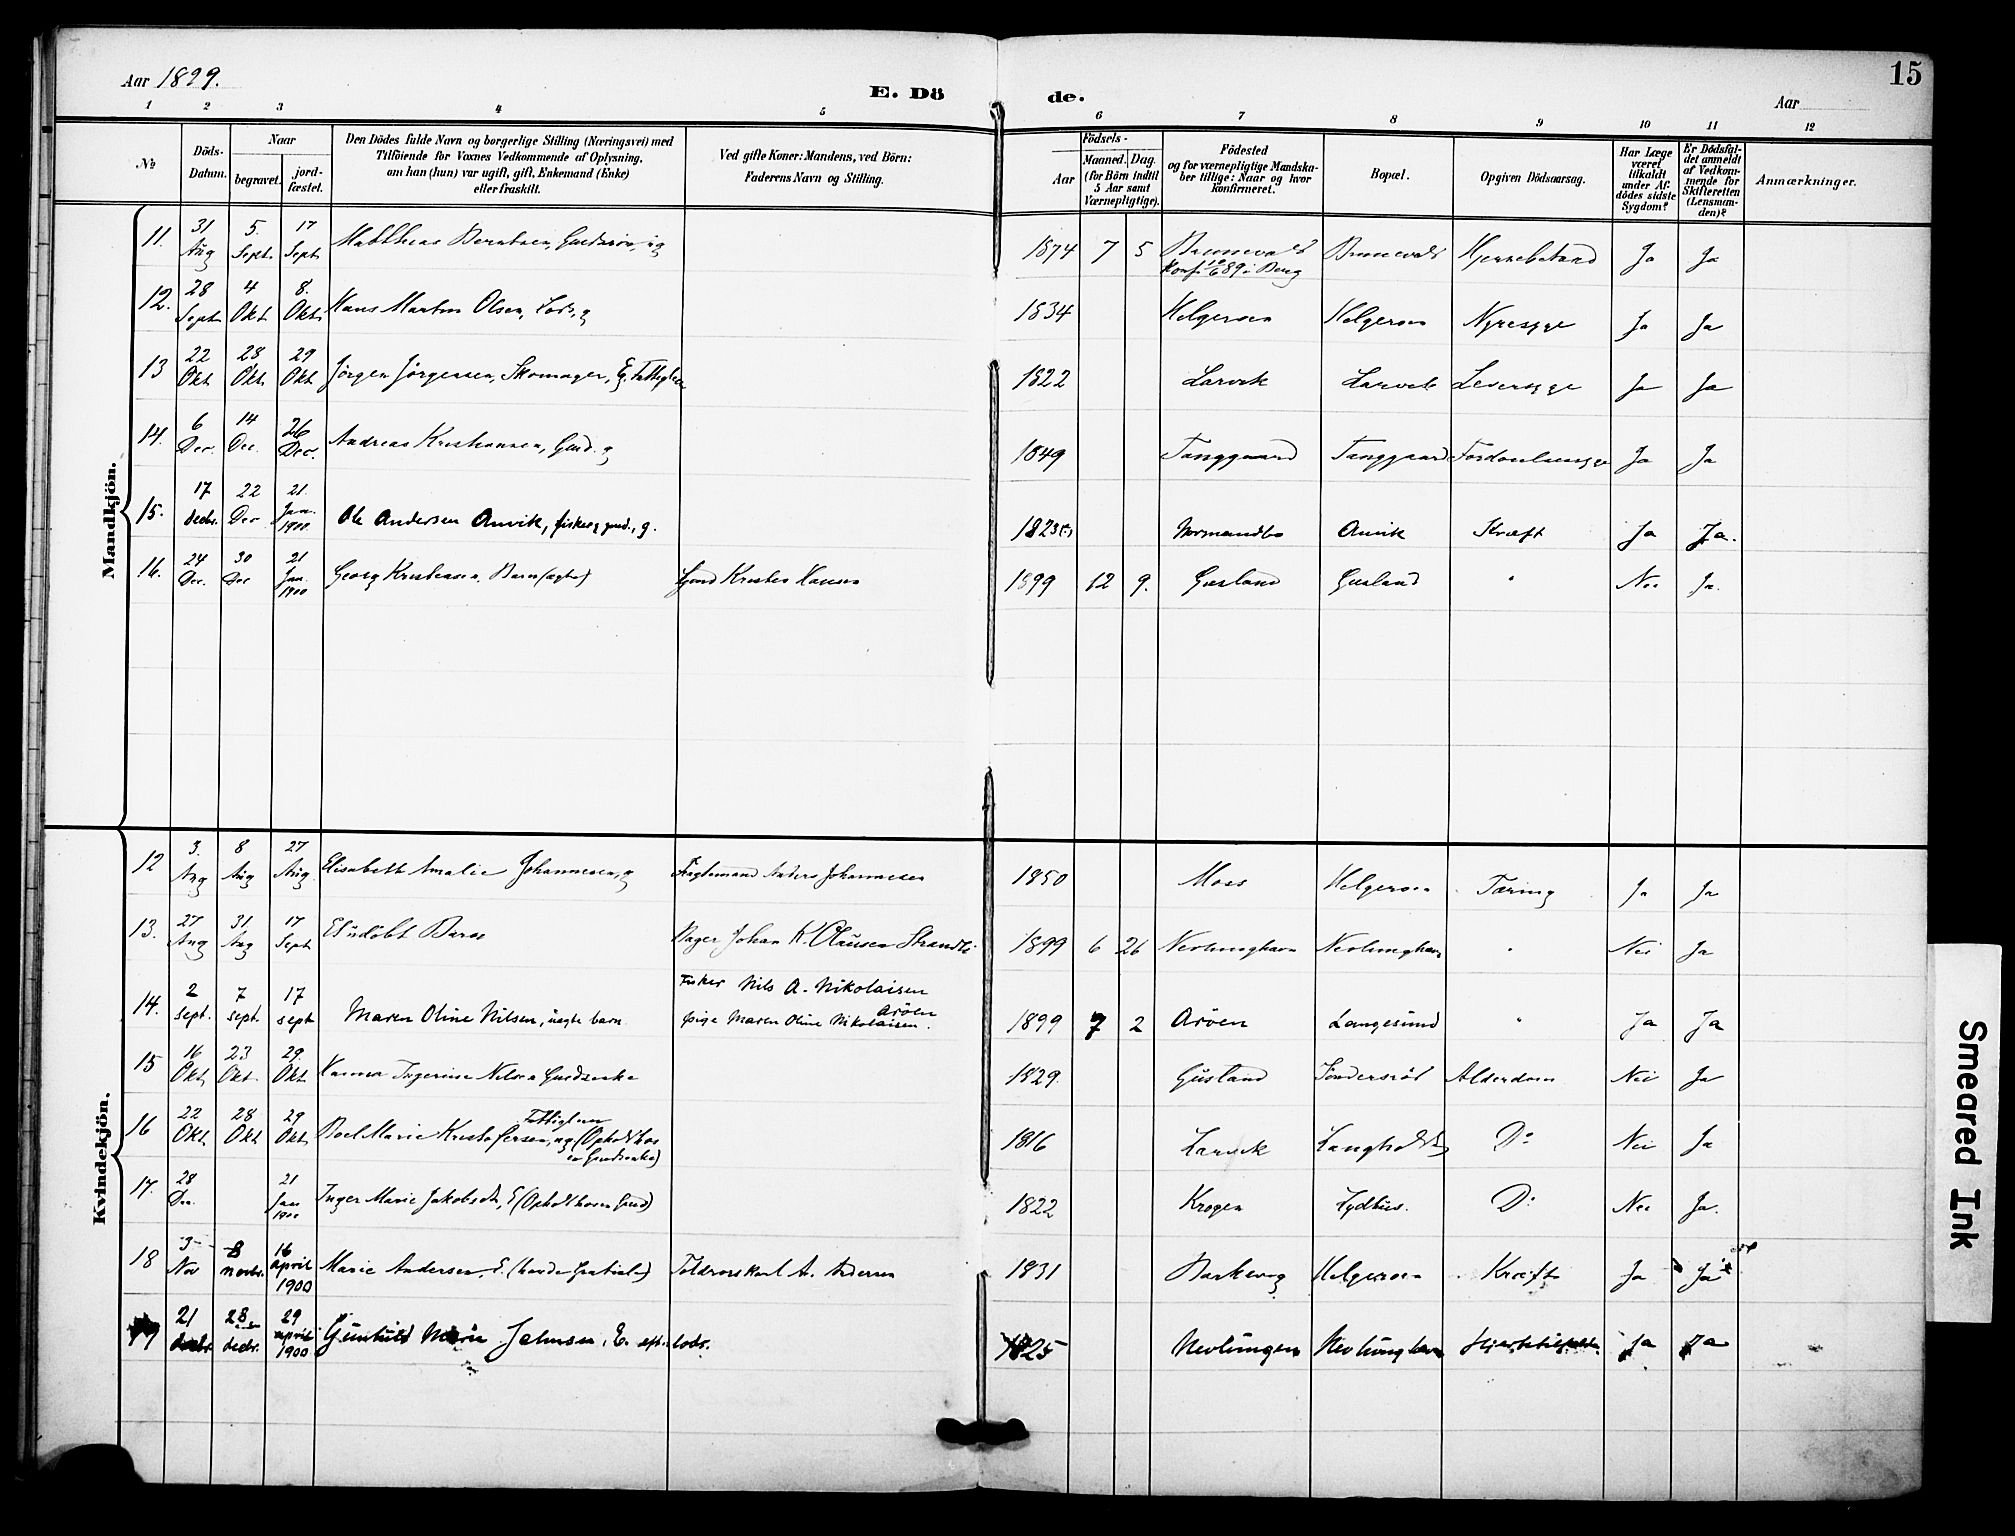 Aar 1899.
E. Dö
de.
Aar
15
1 2 3 4 5 6 7 8 9 10 11 12
No
Döds-Datum.
Naar
begravet.
jord-fæstet.
Den Dödes fulde Navn og borgerlige Stilling (Næringsvei) med
Tilföiende for Voxnes Vedkommende af Oplysning,
om han (hun) var ugift, gift, Enkemand (Enke)
eller fraskilt.
Ved gifte Koner: Mandens, ved Börn:
Faderens Navn og Stilling.
Födsels-
Aar
Maaned. Dag.
(for Börn indtil
5 Aar samt
Værnepligtige).
Födested
og for værnepligtige Mandska-
ber tillige: Naar og hvor
konfirmeret.
Bopæl.
Opgiven Dödsaarsag.
Har Læge
været
tilkaldt
under Af-
dödes sidste
Sygdom?
Er Dödsfal-
det anmeldt
af Vedkom-
mende for
Skifteretten
(Lensman-
den)?
Anmærkninger.
Mandkjön.
11. 31 Aug 5. Sept. 17 Sept. Matthias Berntsen, Gaardssøn, ug 1874 7 5 Konf. 89 i Berg Ja Ja
12. 28 Sept 4 Okt 8. Okt. Hans Martin Olsen, Lods, g 1834 Helgeroen Helgeroen Nyresyge Ja Ja
13 22 Okt. 28 Okt. 29 Okt Jörgen Jörgensen, Skomager, E, 1822 Larvik Larvik Leversyge Ja Ja
14. 6 Dec. 14 Dec. 26 Dec. Andreas Kristiansen, Gmd. g 1849 Tanggaard Tanggaard Ja Ja
15. 17 Decbr. 22 Dec 21. Jan. 1900 Ole Andersen Omvik, fisker g gmd., g. 1823(?) Omvik Kræft Ja Ja.
16. 24 Dec. 30 Dec 21 Jan. 1900 Georg Kristensen, Barn (ægte) Gmd Kristen Hansen 1899 12 9. Gusland Gusland " Nei Ja.
Kvindekjön.
12 3. Aug 8 Aug 27 Aug. Elisabeth Amalie Johannesen, g Anders Johannesen 1850 Moss Helgeroen Tæring Ja Ja
13. 27 Aug 31 Aug 17 Sept Et udöbt Barn Bager Johan K. Clausen 1899 6 26 Nevlunghavn Nevlunghavn " Nei Ja
14. 2 sept. 7 sept. 17 sept Maren Oline Nilsen, uægte barn Fisker Nils A. Nikolaisen
Aröen
pige Maren Oline Nikolaisen. 1899 7 2 Aröen Langesund " Ja Ja
15 16 Okt. 23 Okt. 29. Okt. Hanna Ingerine Nilsen 1829. Gusland Söndersröd Alderdom Nei Ja
16 22 Okt. 28 Okt 29 Okt Boel Marie Kristofersen, ug 1816 Larvik Langholdt Do Nei Ja
17. 28 Dec. 21 Jan 1900 Inger Marie Jakobsdt, E 1822 Krogen Lydhus. Do Nei Ja.
18 3 Nov 8 novbr. 16 April 1900 Marie Andersen, E. Toldrorskarl A. Andersen 1831 Barkevig Helgeroen Kræft Ja Ja
19 21 decbr. 28 decbr. 29 april 1900 Gunhild Marie Johnsen, E. eft. lods. 1825 Nevlungen Nevlunghavn Ja Ja
Smeared Ink